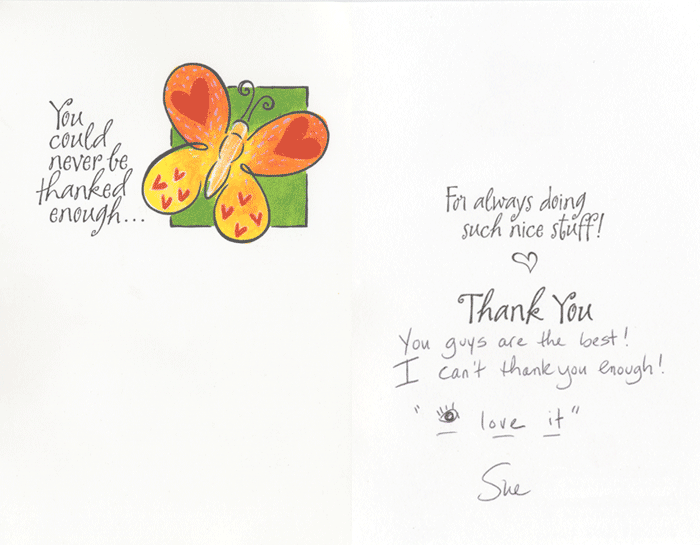 You
could
never be
thanked
enough...
For always doing
such nice stuff!
Thank You
You guys are the best!
I can't thank you enough!
" love it"
Sue